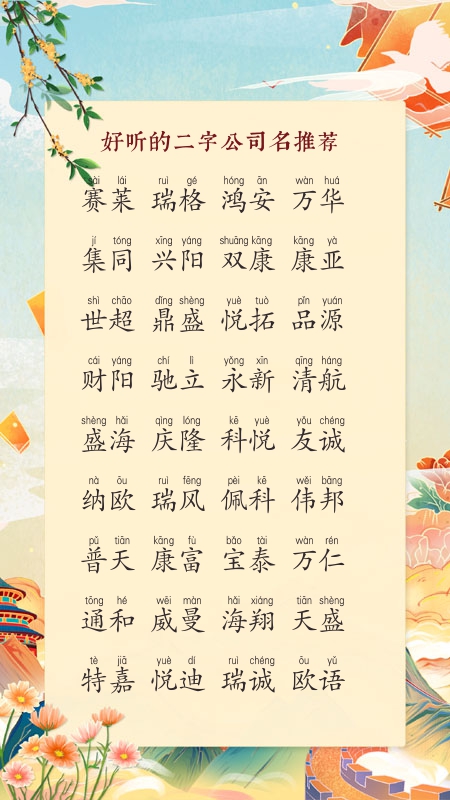 好听的二字公司名推荐
sài lái ruì gé hóng ān wàn huá
赛莱 瑞格 鸿安 万华
jí tóng xīng yáng shuāng kāng kāng yà
集同 兴阳 双康 康亚
shì chāo dǐng shèng yuè tuò pǐn yuán
世超 鼎盛 悦拓 品源
cái yáng chí lì yǒng xīn qīng háng
财阳 驰立 永新 清航
shèng hǎi qìng lóng kē yuè yǒu chéng
盛海 庆隆 科悦 友诚
nà ōu ruì fēng pèi kē wěi bāng
纳欧 瑞风 佩科 伟邦
pǔ tiān kāng fù bǎo tài wàn rén
普天 康富 宝泰 万仁
tōng hé wēi màn hǎi xiáng tiān shèng
通和 威曼 海翔 天盛
tè jiā yuè dí ruì chéng ōu yǔ
特嘉 悦迪 瑞诚 欧语